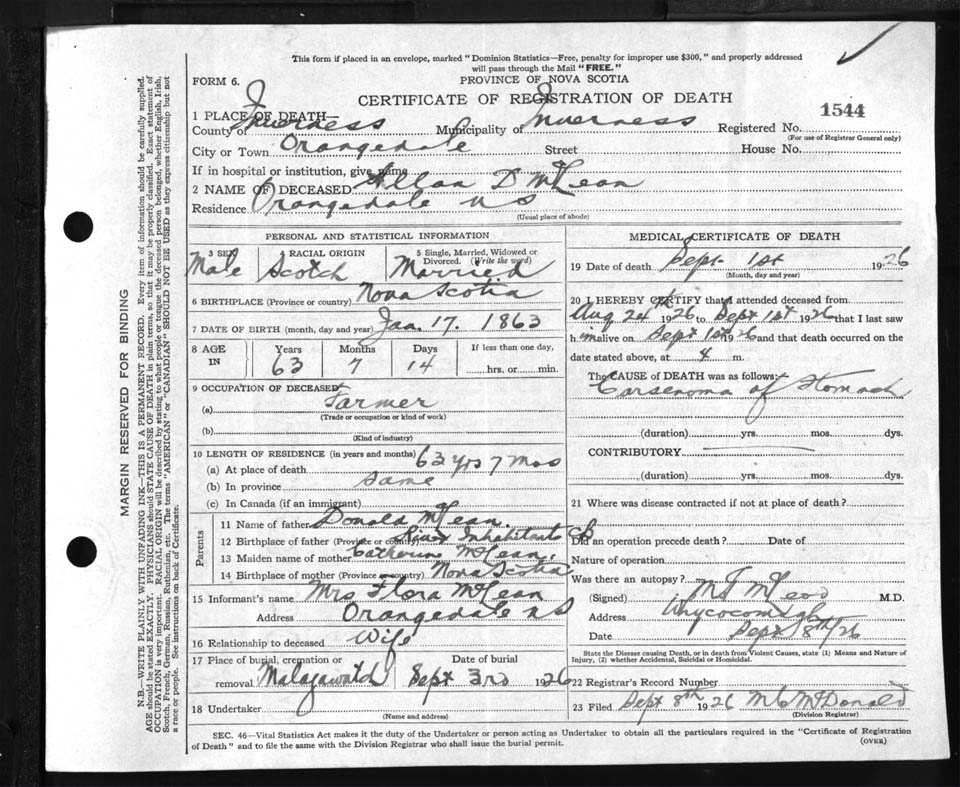 This form if placed in an envelope, marked "Dominion Statistics—Free, penalty for improper use $300," and properly addressed
will pass through the Mail "FREE."
FORM 6.
PROVINCE OF NOVA SCOTIA
CERTIFICATE OF REGISTRATION OF DEATH
1544
1 PLACE OF DEATH—
County of Inverness Municipality of Inverness Registered No.
(For use of Registrar General only)
City or Town Orangedale Street House No.
If in hospital or institution, give name
2 NAME OF DECEASED Allan D McLean
Residence Orangedale NS
(Usual place of abode)
PERSONAL AND STATISTICAL INFORMATION
3 SEX 4 RACIAL ORIGIN 5 Single, Married, Widowed or
Divorced. (Write the word)
Male Scotch Married
6 BIRTHPLACE (Province or country) Nova Scotia
7 DATE OF BIRTH (month, day and year) Jan. 17. 1863
8 AGE IN Years Months Days If less than one day,
63 7 14 hrs. or min.
9 OCCUPATION OF DECEASED
(a) Farmer
(Trade or occupation or kind of work)
(b)
(Kind of industry)
10 LENGTH OF RESIDENCE (in years and months)
(a) At place of death 63 yrs 7 mos
(b) In province same
(c) In Canada (if an immigrant)
Parents
11 Name of father Donald McLean.
12 Birthplace of father (Province or country) Inhabitants CB
13 Maiden name of mother Catherine McLean,
14 Birthplace of mother (Province or country) Nova Scotia
15 Informant's name Mrs Flora McLean
Address Orangedale NS
16 Relationship to deceased Wife
17 Place of burial, cremation or Date of burial
removal Malagawatch Sept 3rd 1926
18 Undertaker
(Name and address)
MEDICAL CERTIFICATE OF DEATH
19 Date of death Sept 1st 1926
(Month, day and year)
20 I HEREBY CERTIFY that I attended deceased from
Aug 24th 1926 to Sept 1st 1926 that I last saw
him alive on Sept 1st 1926 and that death occurred on the
date stated above, at 4 m.
The CAUSE OF DEATH was as follows:
Carsenoma of Stomach
(duration) yrs. mos. dys.
CONTRIBUTORY
(duration) yrs. mos. dys.
21 Where was disease contracted if not at place of death?
Did an operation precede death? Date of
Nature of operation
Was there an autopsy?
(Signed) McLeod M.D.
Address Whycocomagh
Date Sept 8th/26
State the Disease causing Death, or in death from Violent Causes, state (1) Means and Nature of
Injury, (2) whether Accidental, Suicidal or Homicidal.
22 Registrar's Record Number
23 Filed Sept 8th 1926 M C McDonald
(Division Registrar)
SEC. 46—Vital Statistics Act makes it the duty of the Undertaker or person acting as Undertaker to obtain all the particulars required in the "Certificate of Registration
of Death" and to file the same with the Division Registrar who shall issue the burial permit.
(OVER)
MARGIN RESERVED FOR BINDING
N.B.—WRITE PLAINLY WITH UNFADING INK—THIS IS A PERMANENT RECORD. Every item of information should be carefully supplied.
AGE should be stated EXACTLY. PHYSICIANS should STATE CAUSE OF DEATH in plain terms, so that it may be properly classified. Exact statement of
OCCUPATION is very important. RACIAL ORIGIN will be described by stating to what people or tongue the deceased person belonged, whether English, Irish,
Scotch, French, German, Russian, Ruthenian, etc. The terms "AMERICAN" or "CANADIAN" SHOULD NOT BE USED as they express citizenship but not
a race or people. See instructions on back of Certificate.